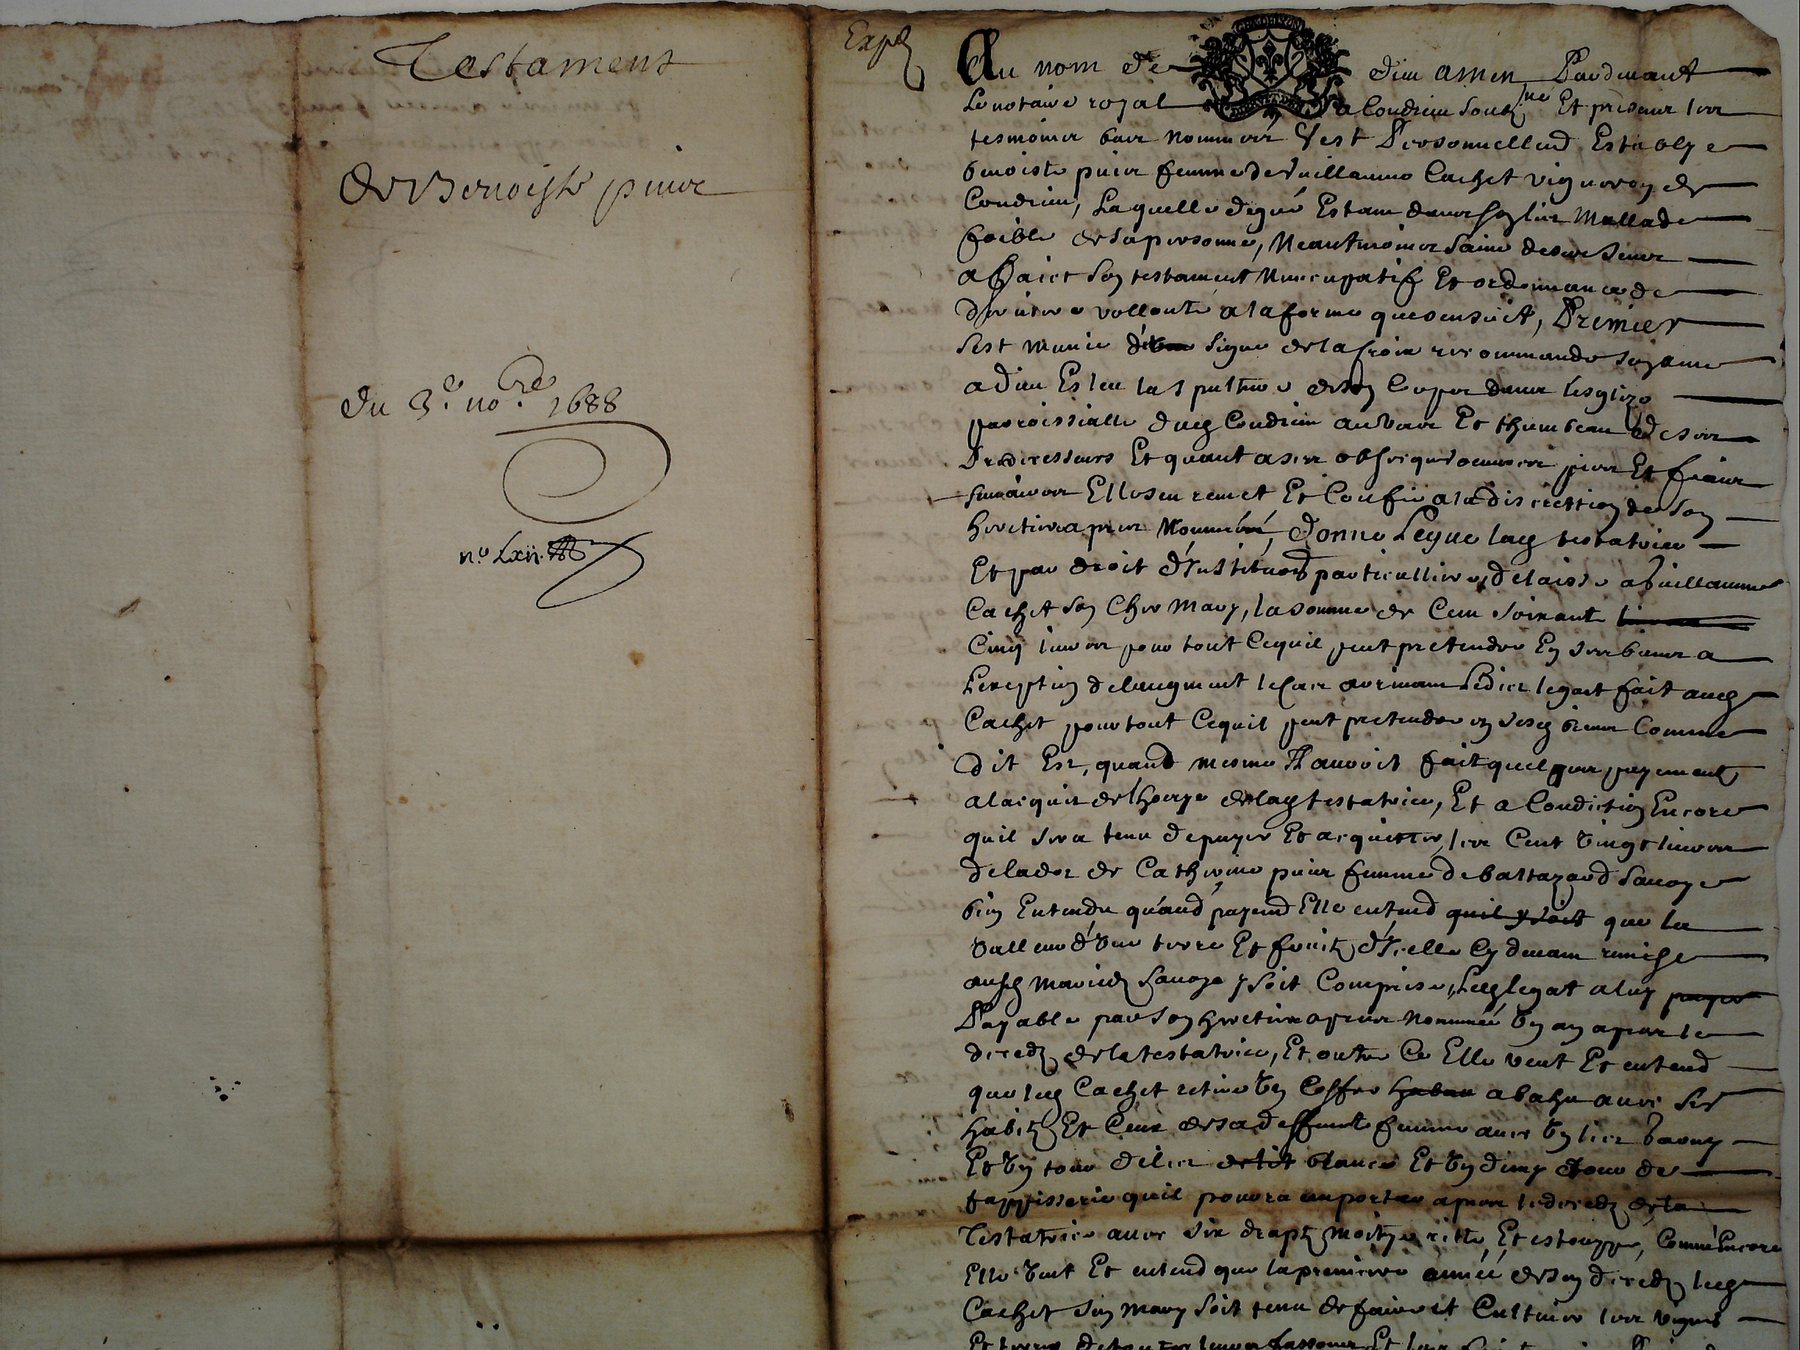 Testament
de Benoiste piuer
du 3.e no.bre 1688
n.o Lxii
Exp.é
Au nom de dieu amen Pardevant
Le notaire royal a Condrieu soubz.né Et presens les
tesmoins bas nommés s'est Personnellem.t Establye
benoiste femme de Guillaume Cachet vigneron de
Condrieu, Laquelle de gré Estant dans son lict Mallade
foible de sa personne, Neantmoins saine de ses sens
a faict son testament Nuncupatif Et ordonnance de
derniere vollonté a la forme que sensuict, Premier
sest munie du signe de la Croix recommandé son ame
a dieu Esleu la sepulture de son Corps dans lesglize
parroissialle dud. Condrieu au vas Et thumbeau de ses
Predecesseurs Et quant a ses obseques oeuvres pies Et frais
funeraires Elle sen remet Et Confie a la discrettion de son
heretier apres Nommé, donne Legue lad. testatrice
Et par droit d'Institution particulliere, delaisse a Guillaume
Cachet son Cher Mary, la somme de Cent soixante
Cinq livres pour tout Cequil peut pretendre En ses biens a
Lexception de laugment led. legat fait aud.
Cachet pour tout Cequil peut pretendre en sesd. biens Comme
dit Est, quand mesme Il auroit fait quelques payements
a lacquit de lhoirye de lad. testatrice, Et a Condiction Encore
quil sera tenu de payer Et acquitter, les Cent vingt livres
de la dot de Catherine femme de baltazard Sauoye
bien Entendu quand Elle entend quil y soit que la
valleur d'une terre Et fruictz d'Icelle Cy devant remise
ausd. mariez Sauoye y soit Comprise, Led. legat a luy
Payable par son heretier apres nommé Un an apres le
decedz de la testatrice, Et outre Ce Elle veut Et entend
que led. Cachet retire Un Coffre a bahu avec ses
habitz Et Ceux de sa deffunte femme avec Un lict
Et Un tour de lict blanc Et Un demy tour de
tappisserie quil pourra emporter apres le decedz de la
Testatrice avec six drapz moitye ritte, Et estouppe, Comme Encore
Elle veut Et entend que la premiere année de son decedz led.
Cachet son mary soit tenu de faire et Cultiver les vignes